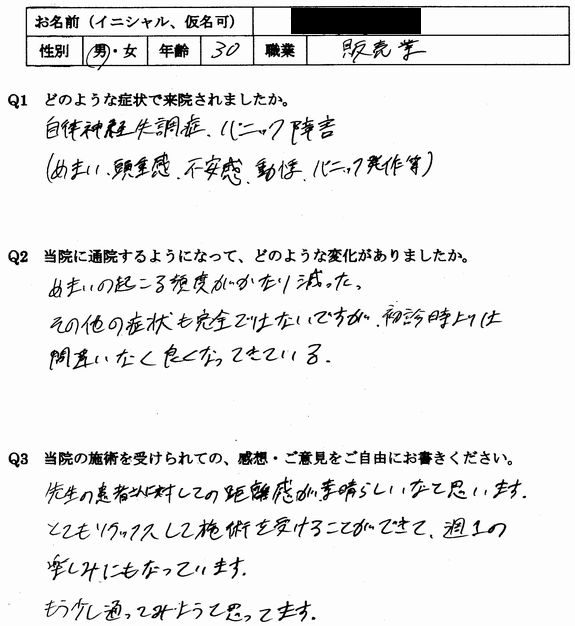 お名前（イニシャル、仮名可）
性別 男・女 年齢 30 職業 販売業
Q1 どのような症状で来院されましたか。
自律神経失調症、パニック障害
(めまい、頭重感、不安感、動悸、パニック発作等)
Q2 当院に通院するようになって、どのような変化がありましたか。
めまいの起こる頻度がかなり減った。
その他の症状も完全ではないですが、初診時よりは
間違いなく良くなってきている。
Q3 当院の施術を受けられての、感想・ご意見をご自由にお書きください。
先生の患者に対しての距離感が素晴らしいなと思います。
とてもリラックスして施術を受けることができて、週1の
楽しみにもなっています。
もう少し通ってみようと思ってます。